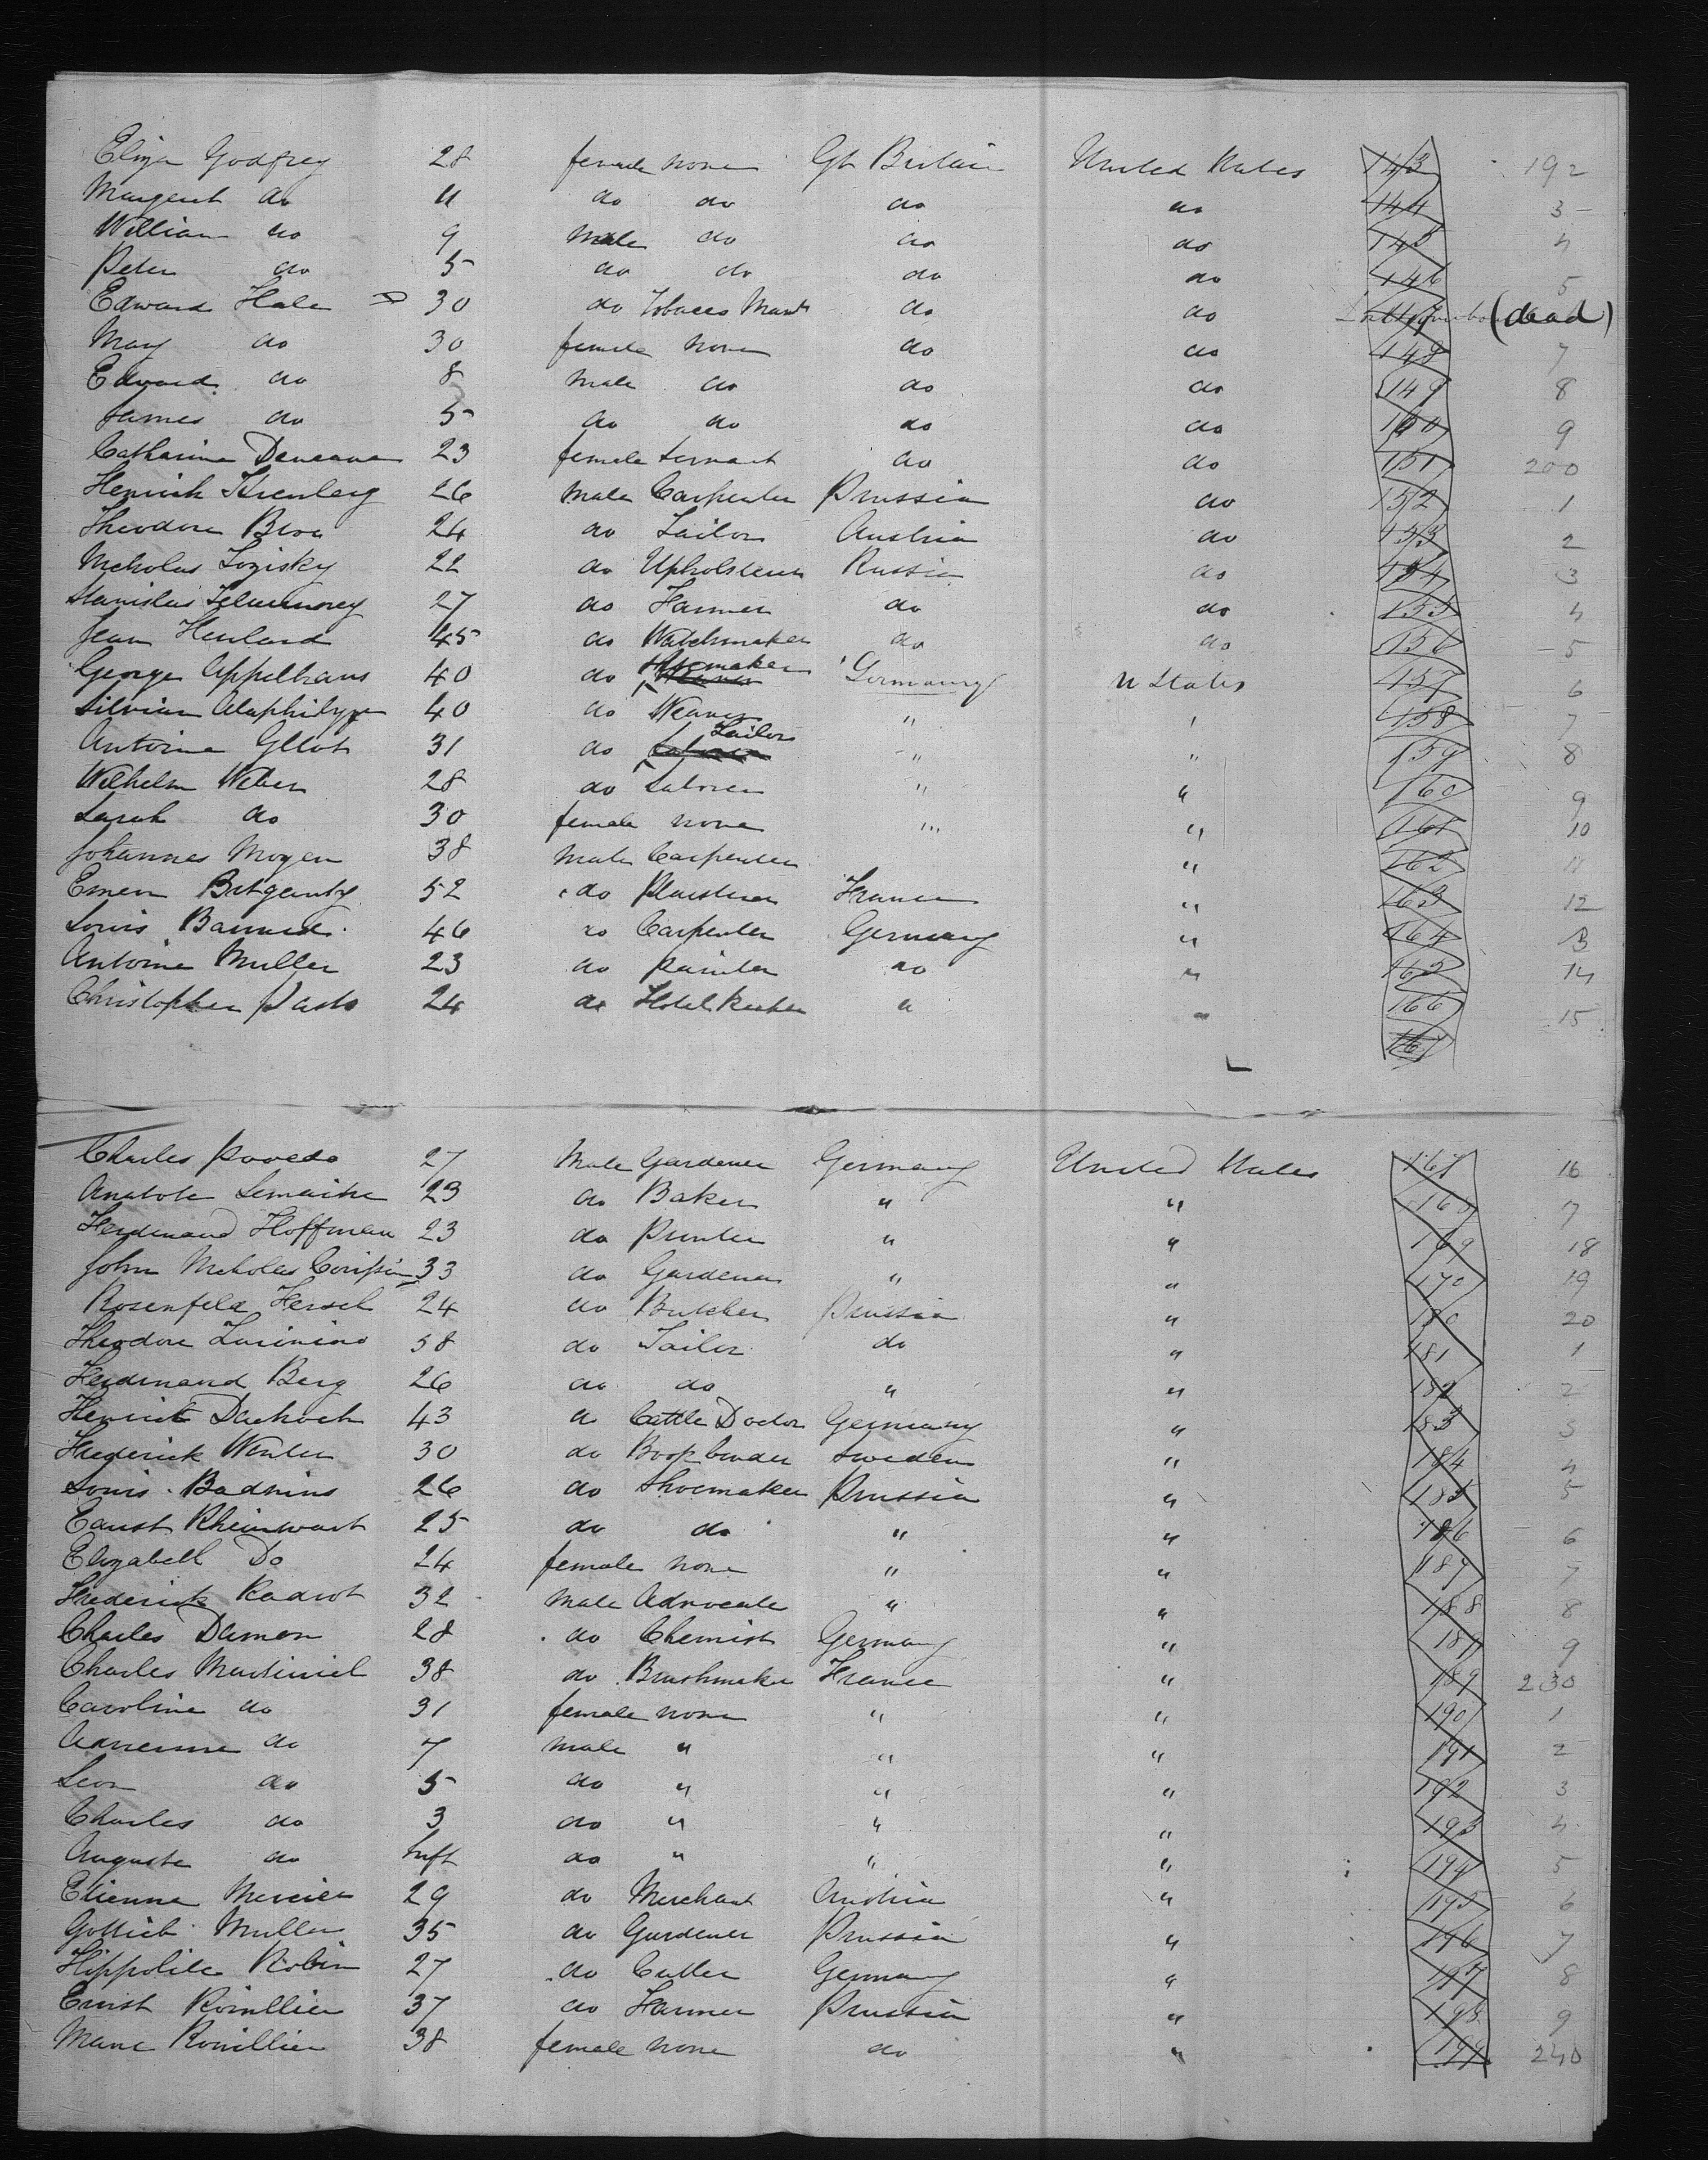 Eliza Godfrey 28 female none Gt Britain United States 143 192
Margaret do 11 do do do do 144 3
William do 9 male do do do 145 4
Peter do 5 do do do do 146 5
Edward Hale 30 do Tobacco Manf do do 147 (dead)
Mary do 30 female none do do 148 7
Edward do 8 male do do do 149 8
James do 5 do do do do 150 9
Catharine 23 female servant do do 151 200
Henrick 26 male Carpenter Prussia do 152 1
Theodore 24 do Tailor Austria do 153 2
Nicholas 22 do Upholsterer Russia do 154 3
Stanislas 27 do Farmer do do 155 4
Jean Heulard 45 do Watchmaker do do 156 5
George Appelhans 40 do Shoemaker Germany U States 157 6
40 do Weaver " " 158 7
Antoine 31 do Tailor " " 159 8
Wilhelm Weber 28 do Laborer " " 160 9
Sarah do 30 female none " " 161 10
Johannes Moyen 38 male Carpenter " 162 11
52 do Plasterer France " 163 12
Louis 46 do Carpenter Germany " 164 13
Antoine Muller 23 do painter do " 165 14
Christopher 24 do Hotel Keeper " " 166 15
167
Charles 27 Male Gardener Germany United States 167 16
Anatole Lemaitre 23 do Baker " " 168 7
Ferdinand Hoffman 23 do Printer " " 169 18
John Nicholas 33 do Gardener " " 170 19
Rosenfeld Hersch 24 do Butcher Prussia " 180 20
Theodore 58 do Tailor do " 181 1
Ferdinand Berg 26 do do " " 182 2
Henrick 43 do Cattle Doctor Germany " 183 3
Frederick Winter 30 do Bookbinder Sweden " 184 4
Louis Badnins 26 do Shoemaker Prussia " 185 5
Ernst Rheinwart 25 do do " " 186 6
Elizabeth Do 24 female none " " 187 7
Frederick Radrot 32 male Advocate " " 188 8
Charles Damon 28 do Chemist Germany " 189 9
Charles Martiniel 38 do Brushmaker France " 189 230
Caroline do 31 female none " " 190 1
do 7 male " " " 191 2
Leon do 5 do " " " 192 3
Charles do 3 do " " " 193 4
Auguste do Inft do " " " 194 5
Etienne Mercier 29 do Merchant Austria " 195 6
Gottlieb Muller 35 do Gardener Prussia " 196 7
Hippolite Robin 27 do Cutler Germany " 197 8
Ernst Rouillier 37 do Farmer Prussia " 198 9
Marie Rouillier 38 female none do " 199 240